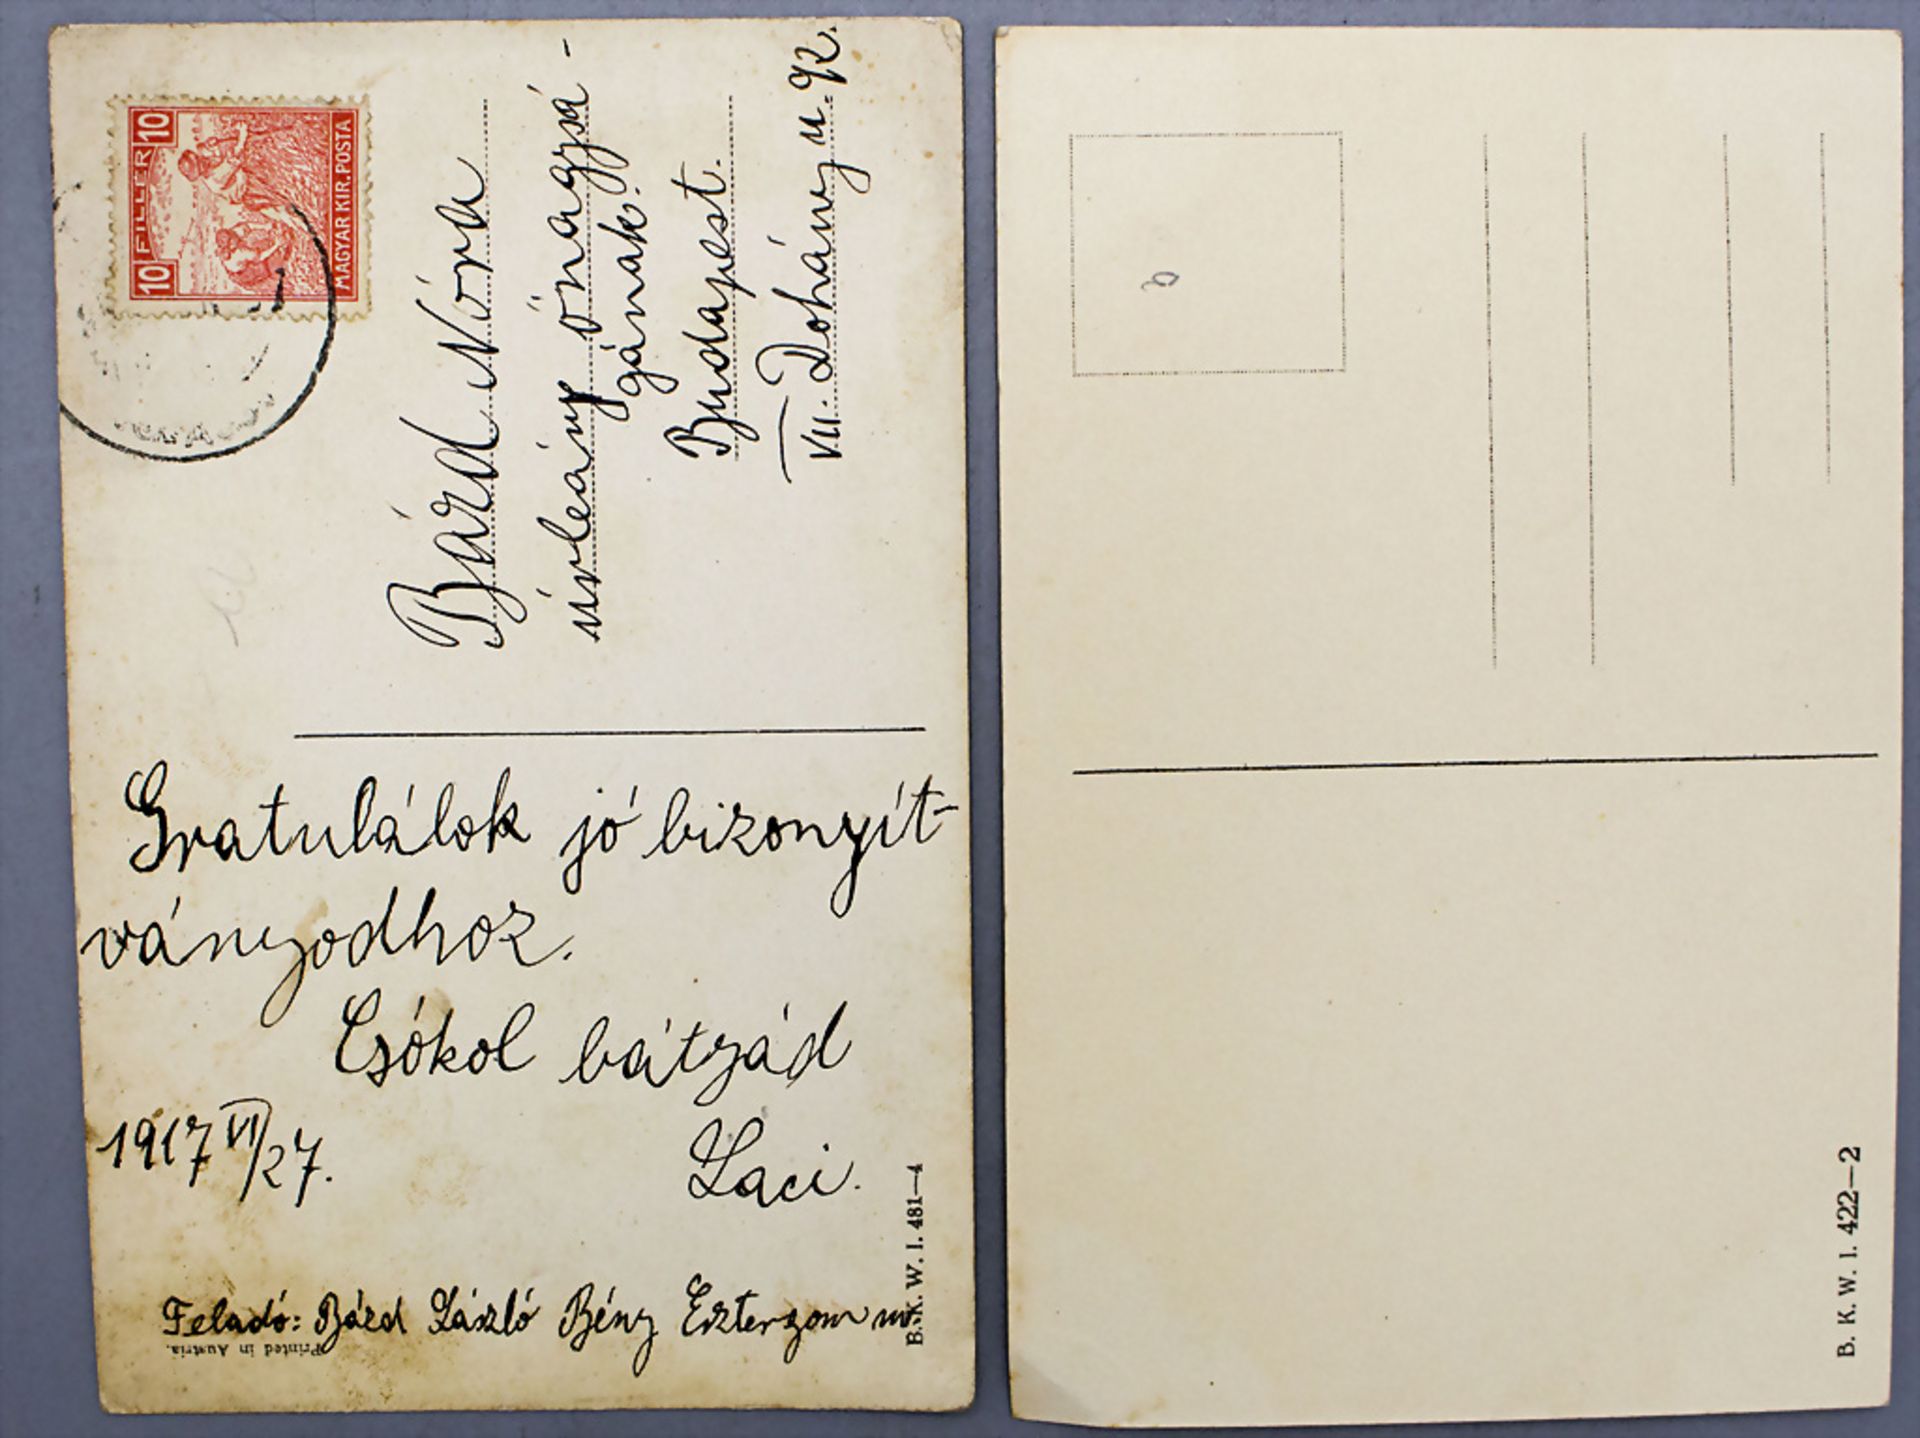 10 FILLÉR 10
MAGYAR KIR. POSTA
Bárd Nóra
úrleány őnagysá-
gának.
Budapest.
VII. Dohány u. 92.
Gratulálok jó bizonyít-
ványodhoz.
Csókol bátyád
1917 VI/27.
Laci.
Feladó: Bárd László Bény Esztergom m.
Printed in Austria.
B. K. W. I. 481—4
B. K. W. I. 422—2